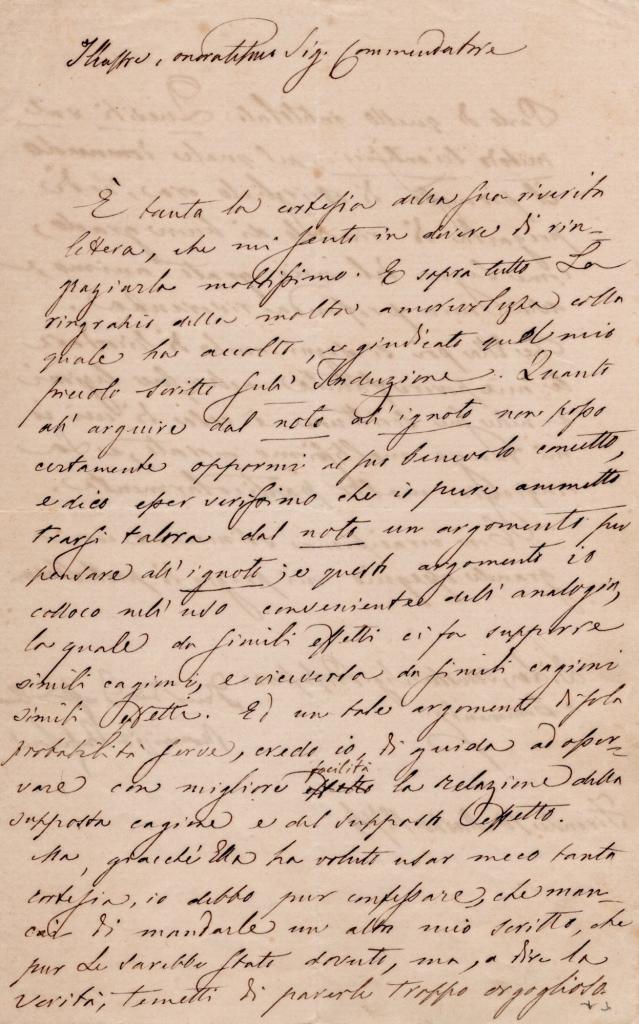 Illustre, onoratissimo Sig. Commendatore
È tanta la cortesia della sua riverita
lettera, che mi sento in dovere di rin-
graziarla moltissimo. E sopra tutto La
ringrazio della molta amorevolezza colla
quale ha accolto, e giudicato quel mio
piccolo scritto sull' Induzione. Quanto
all' arguire dal noto all' ignoto non posso
certamente oppormi al suo benevolo concetto,
e dico esser verissimo che io pure ammetto
trarsi talora dal noto un argomento per
pensare all' ignoto; e questo argomento io
colloco nell' uso conveniente dell' analogia,
la quale da simili effetti ci fa supporre
simili cagioni, e viceversa da simili cagioni
simili effetti. Ed un tale argomento di sola
probabilità serve, credo io, di guida ad osser-
vare con migliore facilità la relazione della
supposta cagione e del supposto effetto.
Ma, giacché Ella ha voluto usar meco tanta
cortesia, io debbo pur confessare, che man-
cai di mandarle un altro mio scritto, che
pur Le sarebbe stato dovuto, ma, a dire la
verità, temetti di parerle troppo orgoglioso.